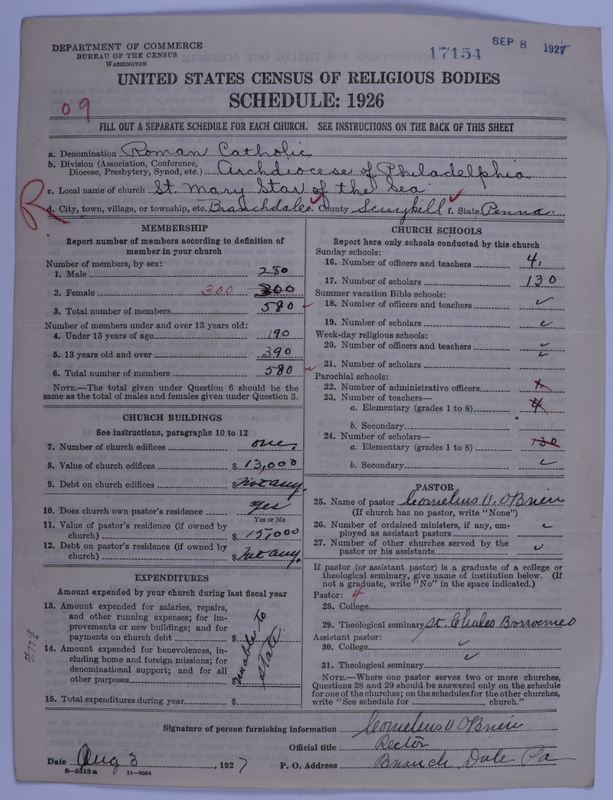 DEPARTMENT OF COMMERCE
BUREAU OF THE CENSUS
WASHINGTON
17154
SEP 8 1927
UNITED STATES CENSUS OF RELIGIOUS BODIES
SCHEDULE: 1926
09
FILL OUT A SEPARATE SCHEDULE FOR EACH CHURCH. SEE INSTRUCTIONS ON THE BACK OF THIS SHEET
a. Denomination Roman Catholic
b. Division (Association, Conference, Diocese, Presbytery, Synod, etc.) Archdiocese of Philadelphia
c. Local name of church St. Mary Star of the Sea
R
d. City, town, village, or township, etc. Branchdale e. County Scuykill f. State Penna.
MEMBERSHIP
Report number of members according to definition of
member in your church
Number of members, by sex:
1. Male 280
2. Female 300 300
3. Total number of members 580
Number of members under and over 13 years old:
4. Under 13 years of age 190
5. 13 years old and over 390
6. Total number of members 580
NOTE.—The total given under Question 6 should be
same as the total of males and females given under Question 3.
CHURCH BUILDINGS
See instructions, paragraphs 10 to 12
7. Number of church edifices one
8. Value of church edifices $ 13,000
9. Debt on church edifices $ Not any.
10. Does church own pastor's residence yes
Yes or No
11. Value of pastor's residence (if owned by
church) $ 15,000
12. Debt on pastor's residence (if owned by
church) $ Not any.
EXPENDITURES
Amount expended by your church during last fiscal year
13. Amount expended for salaries, repairs,
and other running expenses; for im-
provements or new buildings; and for
payments on church debt $
14. Amount expended for benevolences, in-
cluding home and foreign missions; for
denominational support; and for all
other purposes $
unable to
state
15. Total expenditures during year $
CHURCH SCHOOLS
Report here only schools conducted by this church
Sunday schools:
16. Number of officers and teachers 4.
17. Number of scholars 130
Summer vacation Bible schools:
18. Number of officers and teachers
19. Number of scholars
Week-day religious schools:
20. Number of officers and teachers
21. Number of scholars
Parochial schools:
22. Number of administrative officers
23. Number of teachers—
a. Elementary (grades 1 to 8) 4
b. Secondary
24. Number of scholars—
a. Elementary (grades 1 to 8) 130
b. Secondary
PASTOR
25. Name of pastor Cornelius V. O'Brien
(If church has no pastor, write "None")
26. Number of ordained ministers, if any, em-
ployed as assistant pastors
27. Number of other churches served by the
pastor or his assistants
If pastor (or assistant pastor) is a graduate of a college or
theological seminary, give name of institution below. (If
not a graduate, write "No" in the space indicated.)
Pastor: 4
28. College
29. Theological seminary St. Charles Borromeo
Assistant pastor:
30. College
31. Theological seminary
NOTE.—Where one pastor serves two or more churches,
Questions 28 and 29 should be answered only on the schedule
for one of the churches; on the schedules for the other churches,
write "See schedule for church."
Signature of person furnishing information Cornelius V O'Brien
Official title Rector
Date Aug 3, 1927 P. O. Address Branch Dale Pa
8-5318a 11-9034